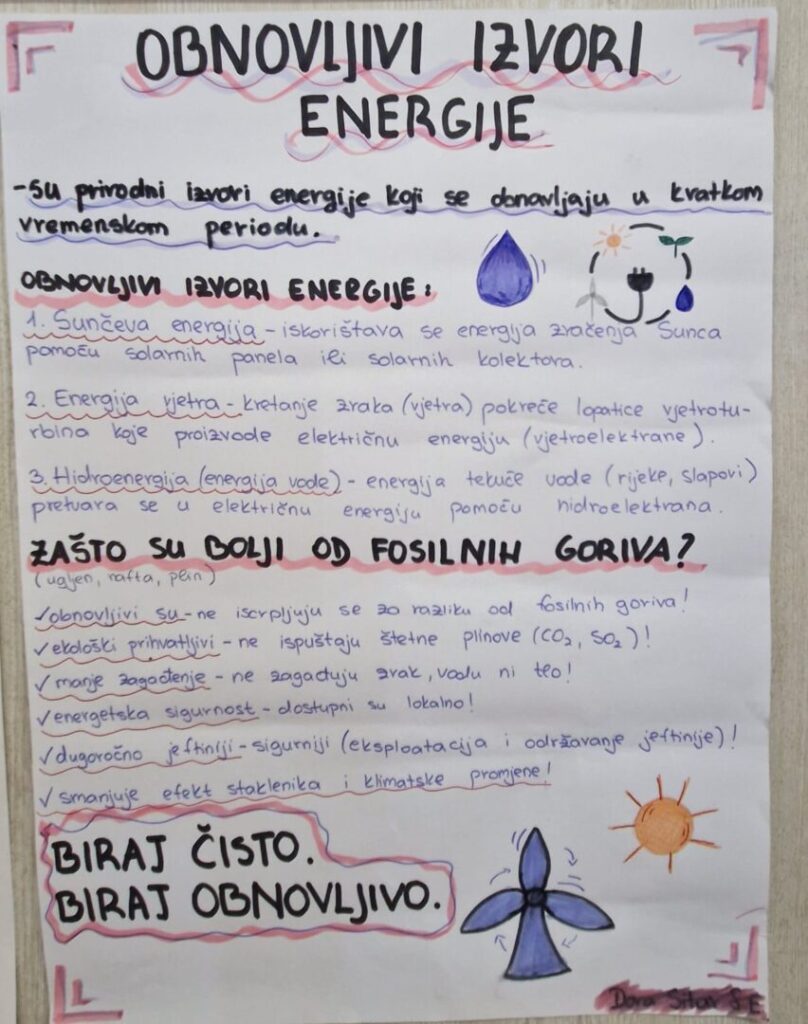 OBNOVLJIVI IZVORI
ENERGIJE
-su prirodni izvori energije koji se obnavljaju u kratkom
vremenskom periodu.
OBNOVLJIVI IZVORI ENERGIJE:
1. Sunčeva energija - iskorištava se energija zračenja Sunca
pomoću solarnih panela ili solarnih kolektora.
2. Energija vjetra - kretanje zraka (vjetra) pokreće lopatice vjetrotu-
rbina koje proizvode električnu energiju (vjetroelektrane).
3. Hidroenergija (energija vode) - energija tekuće vode (rijeke, slapovi)
pretvara se u električnu energiju pomoću hidroelektrana.
ZAŠTO SU BOLJI OD FOSILNIH GORIVA?
(ugljen, nafta, plin)
✓obnovljivi su - ne iscrpljuju se za razliku od fosilnih goriva!
✓ekološki prihvatljivi - ne ispuštaju štetne plinove (CO₂, SO₂)!
✓manje zagađenje - ne zagađuju zrak, vodu ni tlo!
✓energetska sigurnost - dostupni su lokalno!
✓dugoročno jeftiniji - sigurniji (eksploatacija i održavanje jeftinije)!
✓smanjuje efekt staklenika i klimatske promjene!
BIRAJ ČISTO.
BIRAJ OBNOVLJIVO.
Dora